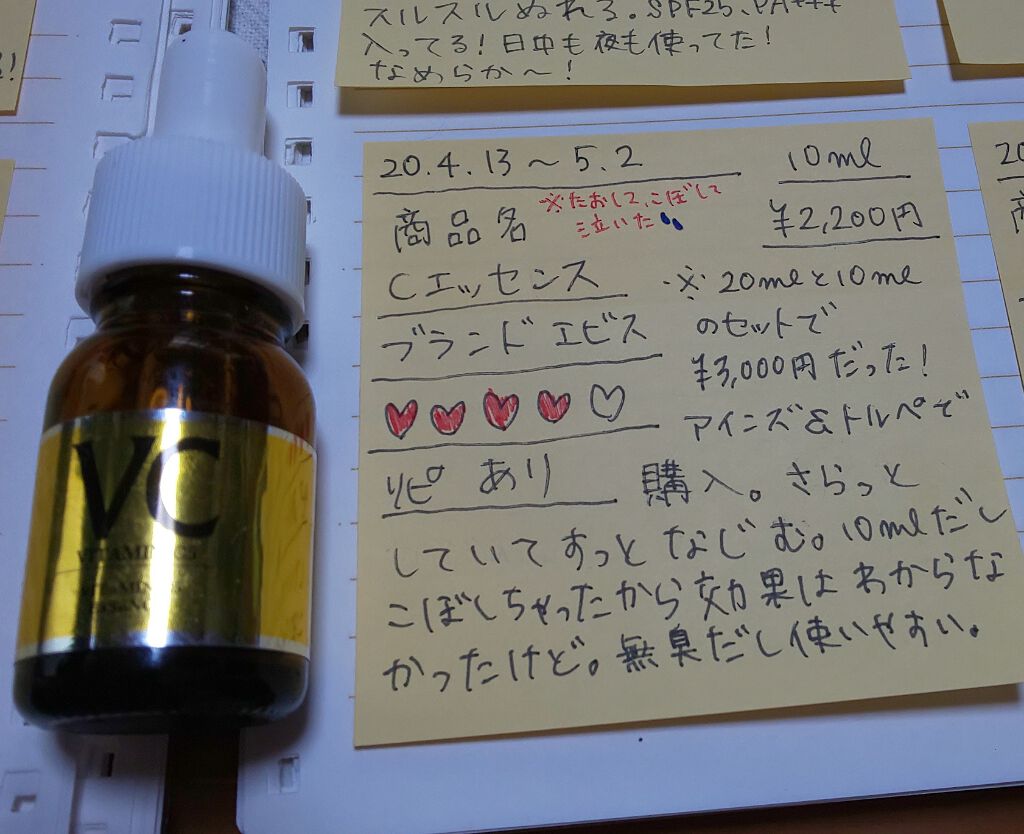 スルスルぬれる。SPF25、PA+++
入ってる!日中も夜も使ってた!
なめらか〜!
20.4.13〜5.2
10ml
商品名
※たおして、こぼして
泣いた
¥2,200円
Cエッセンス
ブランド エビス
リピ あり
※20mlと10ml
のセットで
¥3,000円だった!
アインズ&トルペで
購入。さらっと
していてすっとなじむ。10mlだし
こぼしちゃったから効果はわからな
かったけど。無臭だし使いやすい。
VC
VITAMIN
20
商